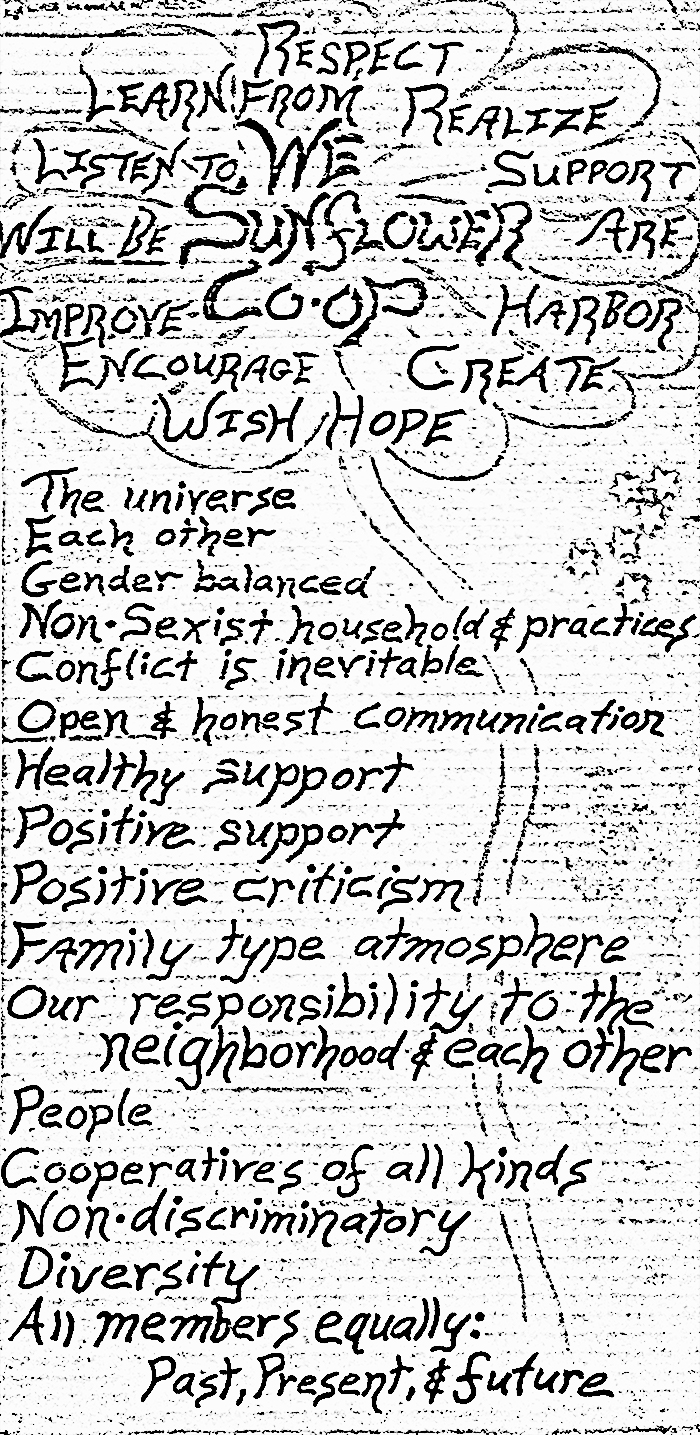 RESPECT
LEARN FROM REALIZE
LISTEN TO WE SUPPORT
WILL BE SUNFLOWER ARE
IMPROVE CO·OP HARBOR
ENCOURAGE CREATE
WISH HOPE
The universe
Each other
Gender balanced
Non·Sexist household & practices
Conflict is inevitable
Open & honest communication
Healthy support
Positive support
Positive criticism
Family type atmosphere
Our responsibility to the
neighborhood & each other
People
Cooperatives of all kinds
Non·discriminatory
Diversity
All members equally:
Past, Present, & future